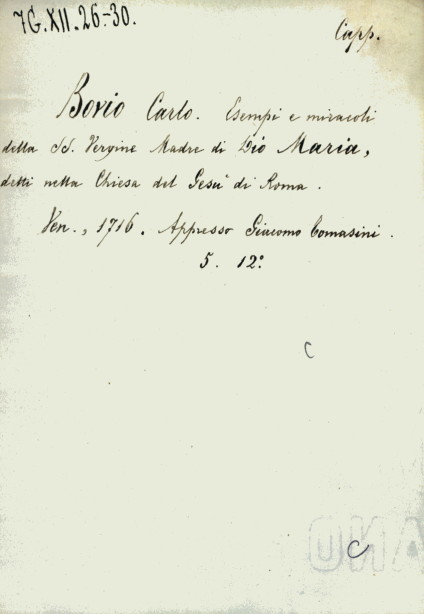 7G.XII.26-30.
Capp.
Bovio Carlo. Esempi e miracoli
della SS. Vergine Madre di Dio Maria,
detti nella Chiesa del Gesù di Roma.
Ven., 1716. Appresso Giacomo Tomasini.
5. 12°.
C
C